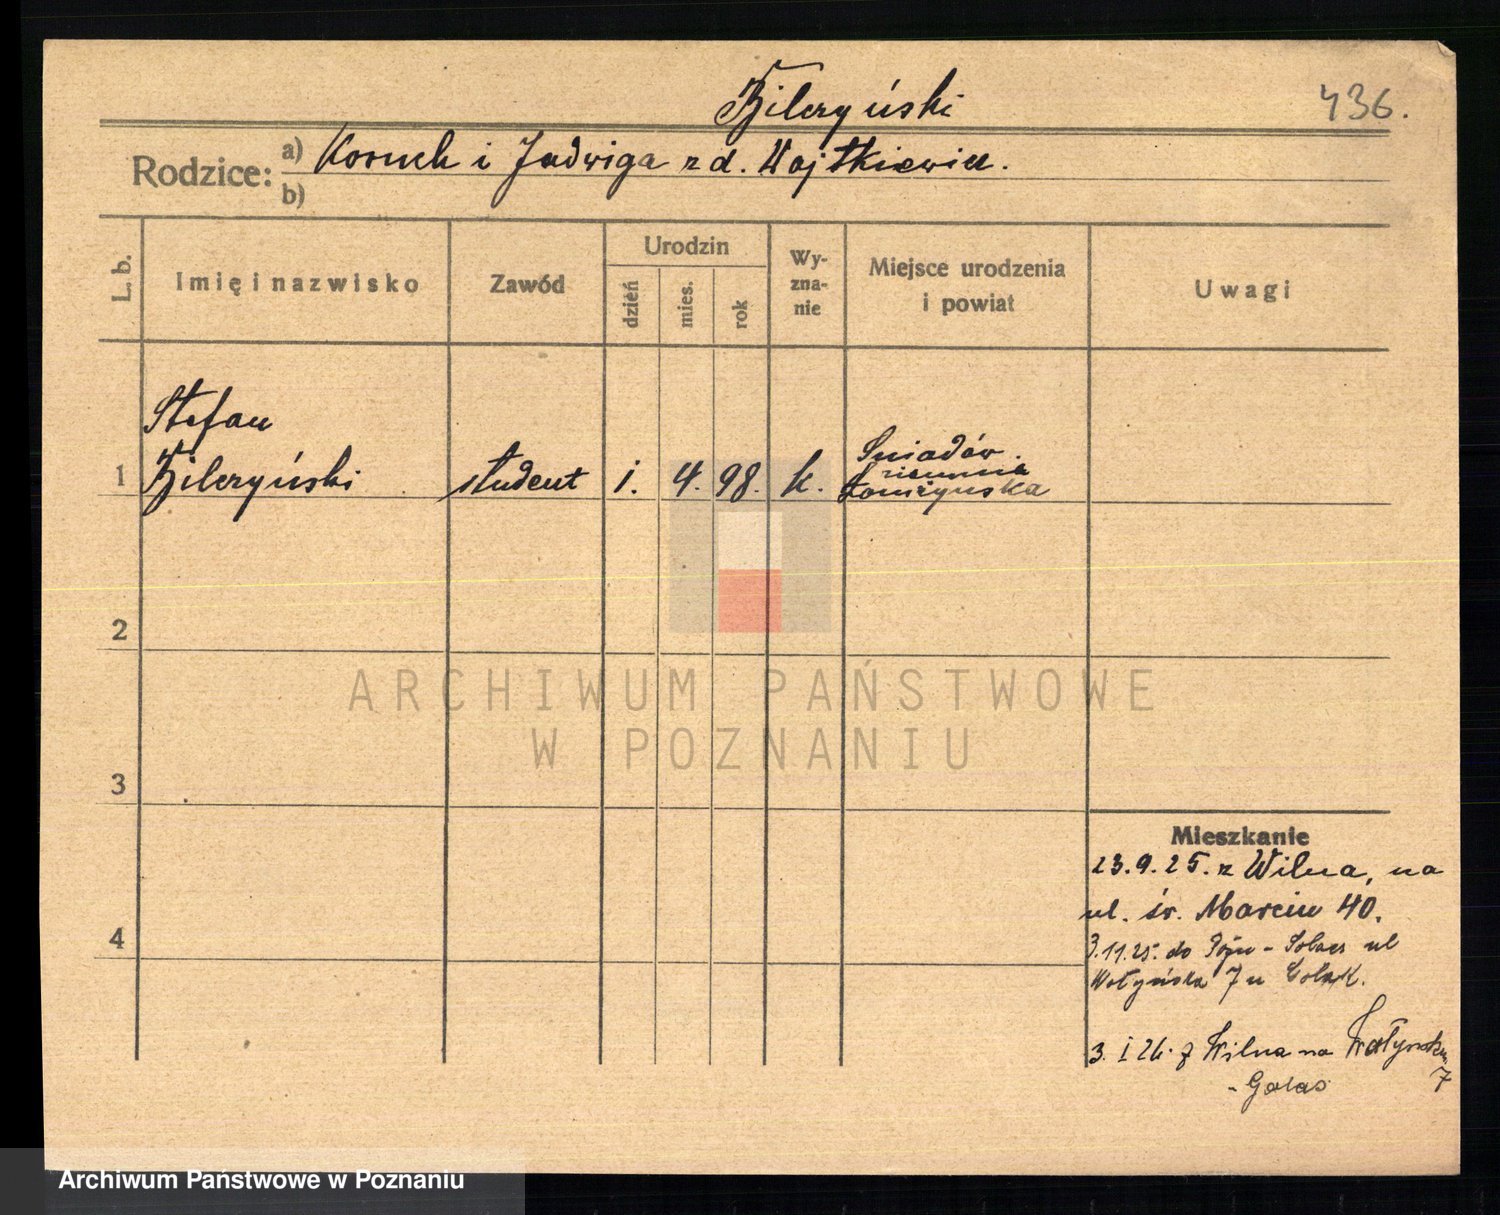 Bilczyński
436.
Rodzice: a) Kornel i Jadwiga z d. Wojtkiewicz.
b)
L. b.
Imię i nazwisko
Zawód
Urodzin
dzień
mies.
rok
Wy-
zna-
nie
Miejsce urodzenia
i powiat
Uwagi
Stefan
1 Bilczyński student 1. 4. 98. k.
Śniadów.
ziemnia
Łomżyńska
2
3
4
ARCHIWUM PAŃSTWOWE
W POZNANIU
Mieszkanie
23.9.25. z Wilna, na
ul. św. Marcin 40.
3.11.25. do Sołacz ul
Wołyńska 7 u
3. I 26. z Wilna na Wołyńską
7
Archiwum Państwowe w Poznaniu